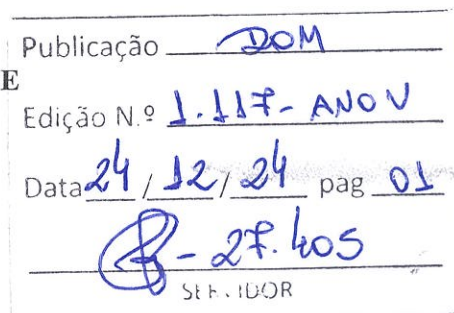 Publicação DOM
E
Edição N.º 1.117- ANO V
Data 24 / 12 / 24 pag 01
- 27.405
SERVIDOR